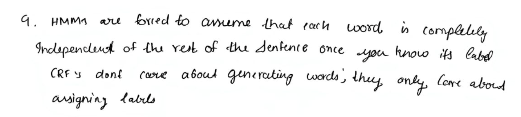 9. HMMs are forced to assume that each word is completely
Independent of the rest of the sentence once you know its label
CRF's dont care about generating words; they only care about
assigning labels